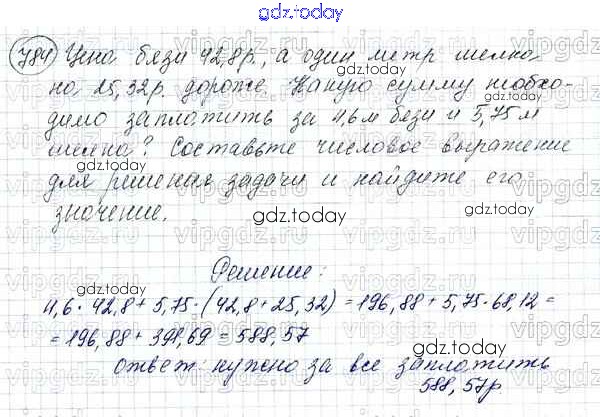 gdz.today
784) Цена бязи 42,8р., а один метр шелка
на 25,32р. дороже. Какую сумму необхо-
димо заплатить за 4,6м бязи и 5,75м
шелка? Составьте числовое выражение
для решения задачи и найдите его
значение.
Решение:
4,6·42,8+5,75·(42,8+25,32)=196,88+5,75·68,12=
=196,88+391,69=588,57
ответ: нужно за все заплатить
588,57р.
gdz.today
gdz.today
gdz.today
gdz.today
gdz.today
gdz.today